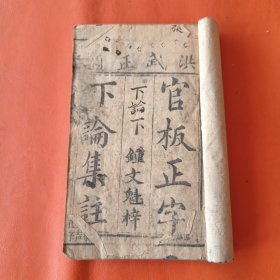 洪武正
官板正字
下論下 鍾文魁梓
下論集註